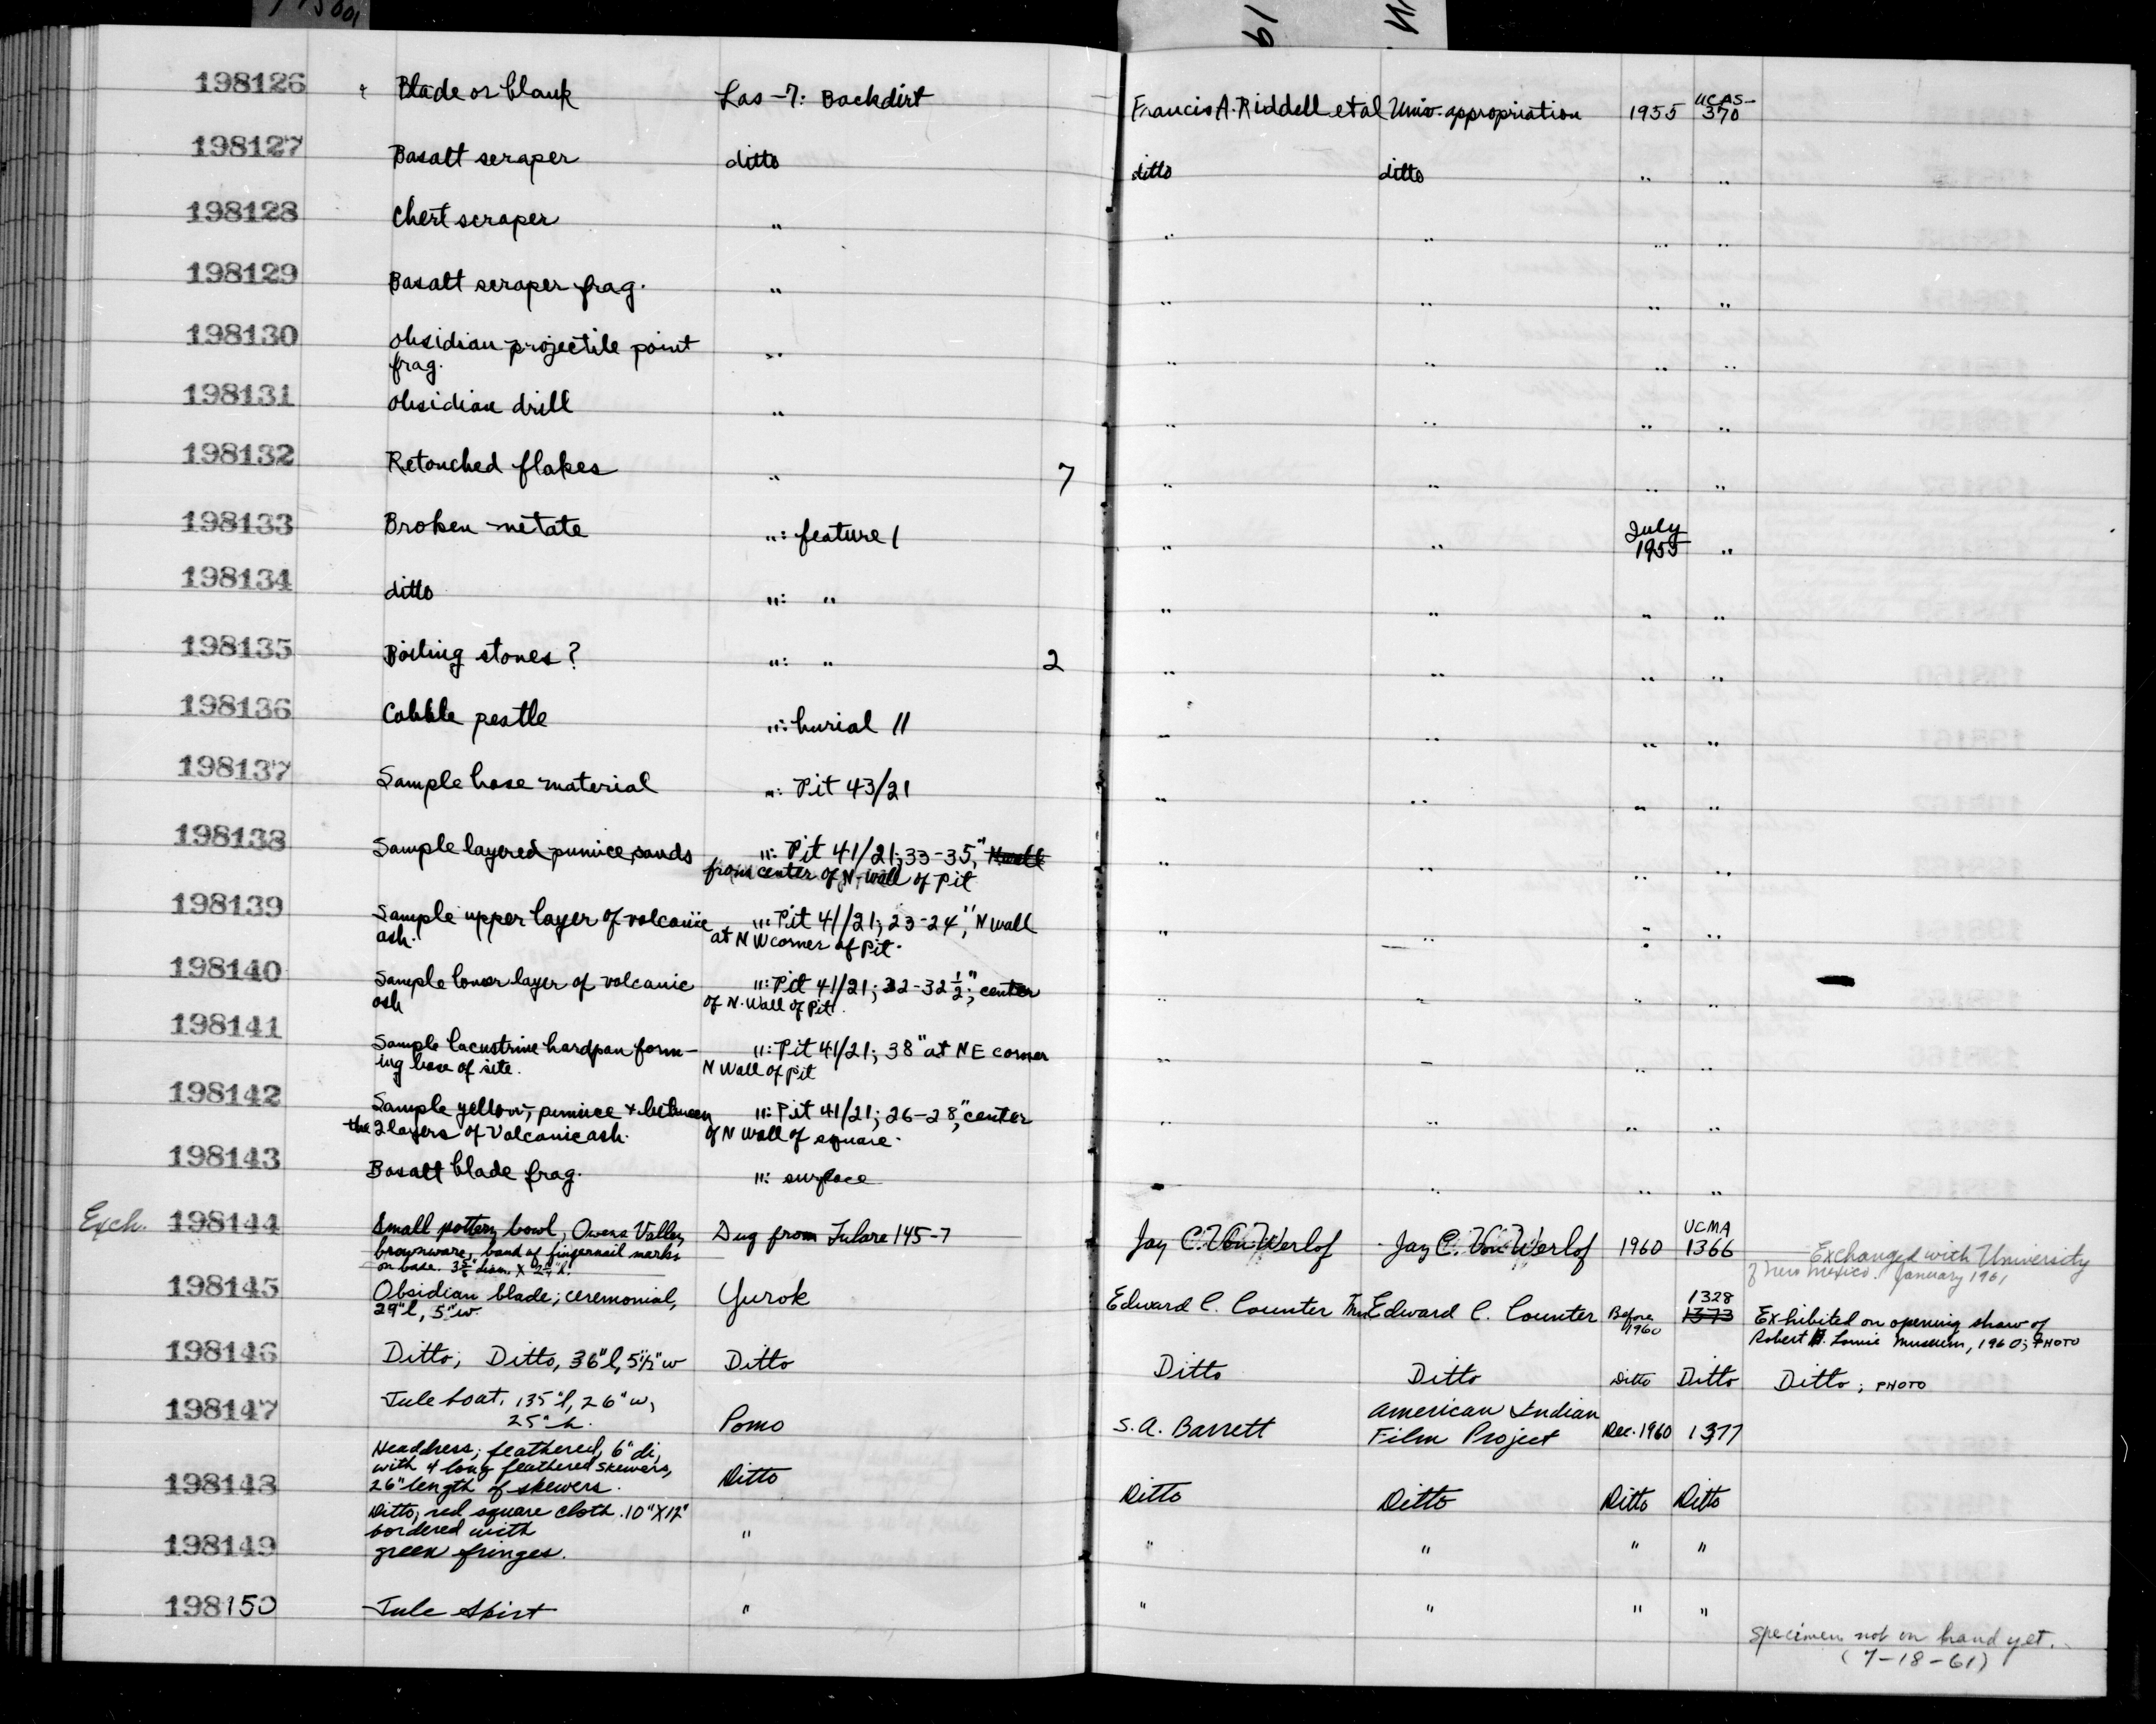 198126 Blade or blank Las-7: Backdirt Francis A. Riddell et al Univ. appropriation 1955 UCAS-370
198127 Basalt scraper ditto ditto ditto " "
198128 Chert scraper " " " " "
198129 Basalt scraper frag. " " " " "
198130 obsidian projectile point " " " " "
frag.
198131 obsidian drill " " " " "
198132 Retouched flakes " 7 " " " "
198133 Broken metate ": feature 1 " " July 1955 "
198134 ditto ": " " " " "
198135 Boiling stones? ": " 2 " " " "
198136 Cobble pestle ": burial 11 " " " "
198137 Sample base material ": Pit 43/21 " " " "
198138 Sample layered pumice, sands ": Pit 41/21; 33-35," N wall " " " "
from center of N-wall of Pit
198139 Sample upper layer of volcanic ": Pit 41/21; 23-24", N wall " " " "
ash. at NW corner of Pit.
198140 Sample lower layer of volcanic ": Pit 41/21; 32-32 1/2"; center " " " "
ash of N. Wall of Pit.
198141 Sample lacustrine hardpan form- ": Pit 41/21; 38" at NE corner " " " "
ing base of site. N Wall of pit
198142 Sample yellow, pumice + between ": Pit 41/21; 26-28," center " " " "
the 2 layers of Volcanic ash. of N wall of square.
198143 Basalt blade frag. ": surface " " " "
Exch. 198144 Small pottery bowl, Owens Valley Dug from Tulare 145-7 Jay C. Von Werlof Jay C. Von Werlof 1960 UCMA 1366 Exchanged with University
brownware, band of fingernail marks of New Mexico. January 1961
on base. diam. X h.
198145 Obsidian blade; ceremonial, Yurok Edward C. Counter Edward C. Counter Before 1960 1328 1373 Exhibited on opening show of
29"l, 5"w. Robert H. Lowie Museum, 1960; PHOTO
198146 Ditto; Ditto, 36"l, 5 1/2"w Ditto Ditto Ditto Ditto Ditto Ditto; PHOTO
198147 Tule boat, 135"l, 26"w, Pomo S.A. Barrett American Indian Film Project Dec. 1960 1377
25"h.
Headdress; feathered, 6"di,
with 4 long feathered skewers,
198148 26" length of skewers. Ditto Ditto Ditto Ditto Ditto
Ditto, red square cloth. 10"X12"
bordered with
198149 green fringes. " " " " "
198150 Tule Skirt " " " " "
Specimen not on hand yet.
(7-18-61)